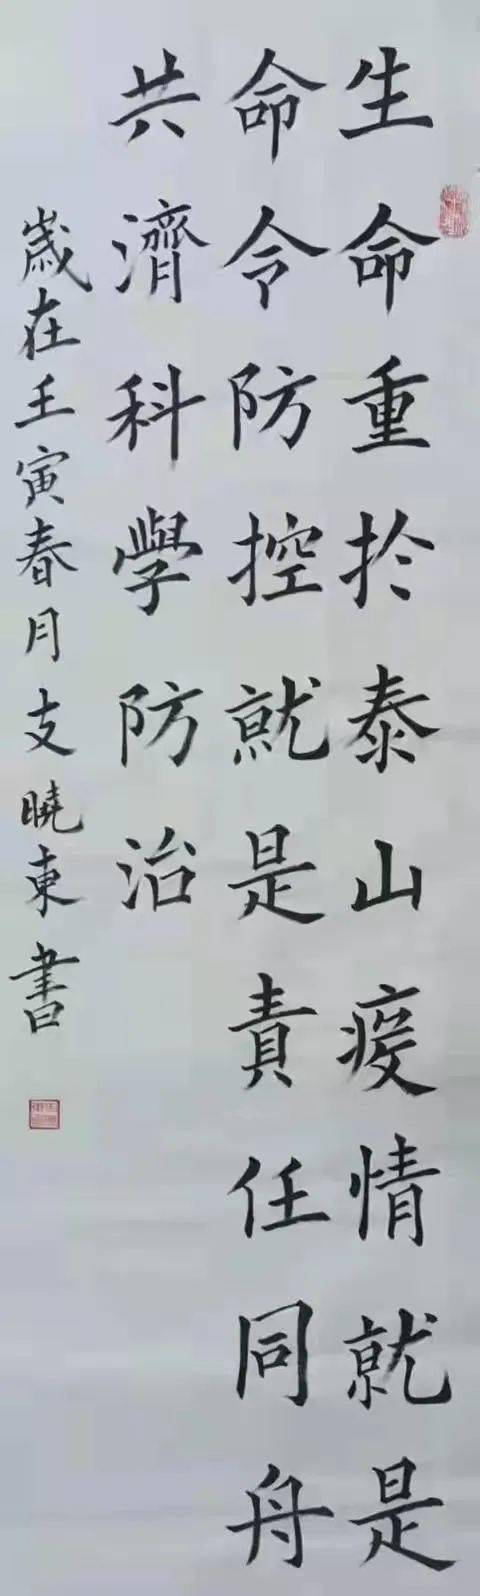 生命重扵泰山疫情就是
命令防控就是責任同舟
共濟科學防治
歲在壬寅春月支曉東書